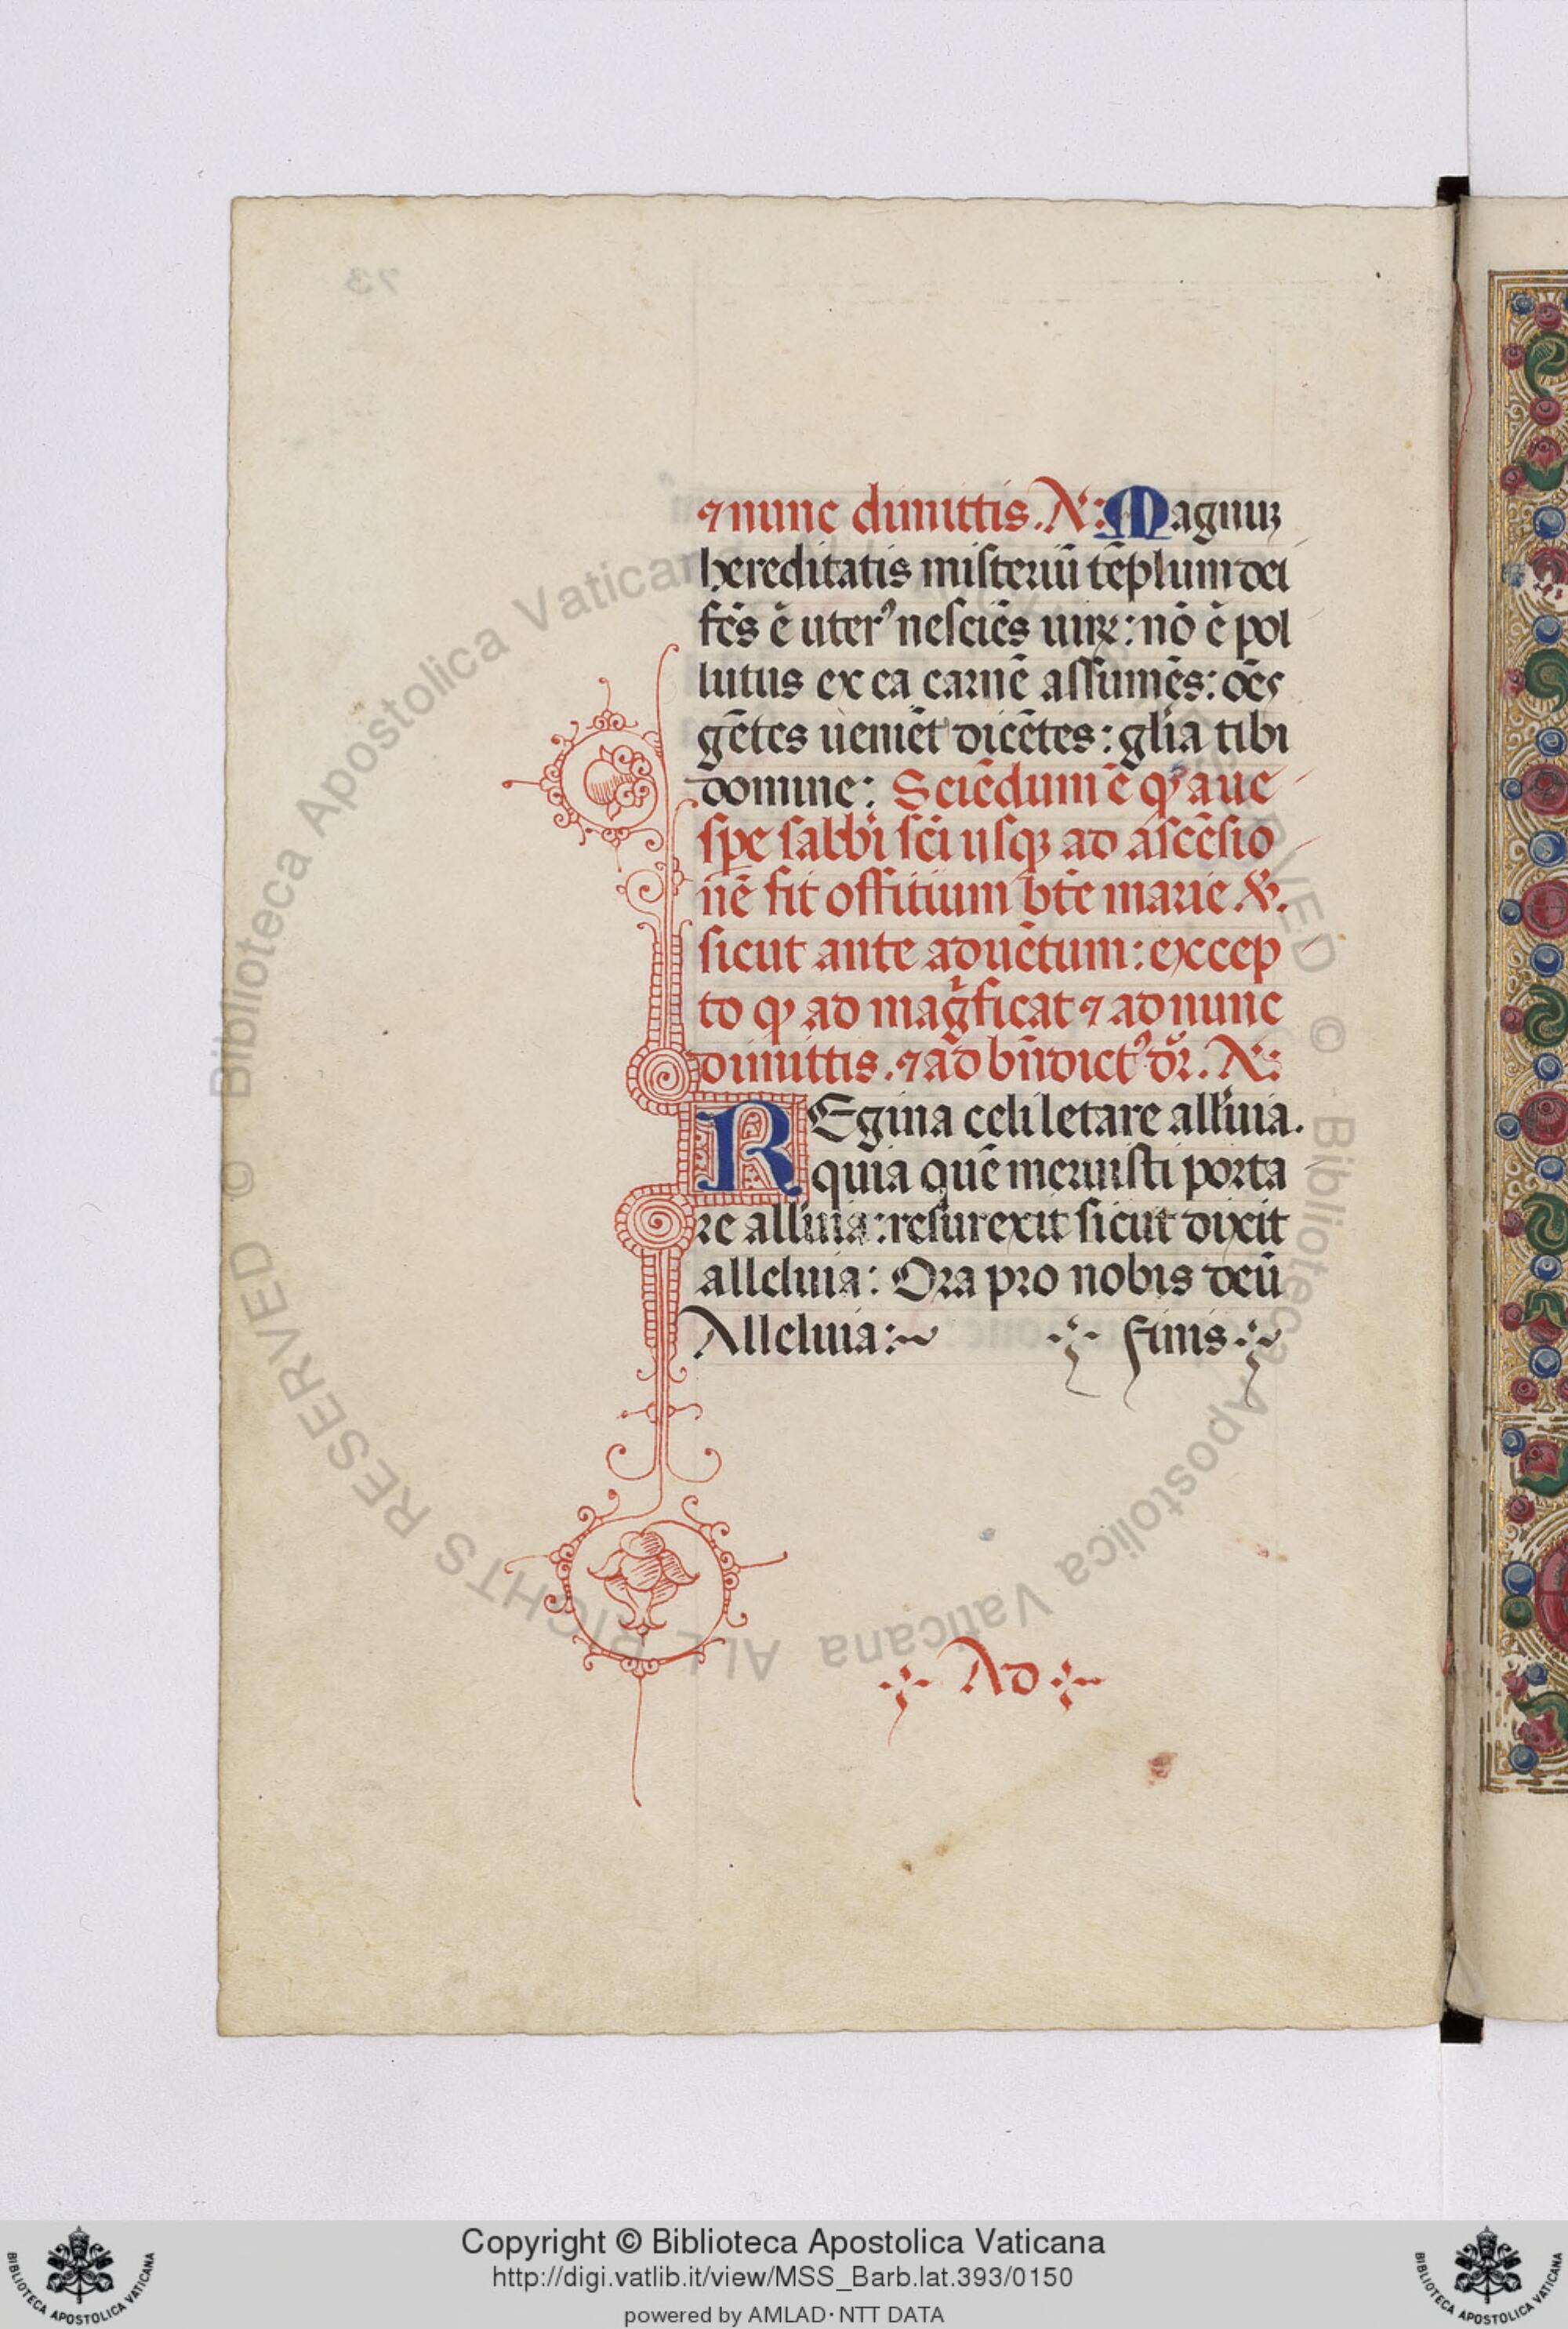 ⁊ nunc dimittis. A: Magnuꝫ
hereditatis misteriū tēplum dei
fcs̄ ē uter᾽ nesciēs uiꝝ: nō ē pol
lutus ex ea carnē assumēs: oēs
gētes ueniēt dicētes: glīa tibi
domine: Sciēdum ē ꝙ a ue
spe sabbī scī usqꝫ ad ascēsio
nē fit offitium btē marie v.
sicut ante aduētum: excep
to ꝙ ad mag̃ficat ⁊ ad nunc
dimittis. ⁊ ad bn̄dict᾽ dr̄. A:
REgina celi letare all'uia.
quia quē meruisti porta
re all'uia: resurexit sicut dixit
alleluia: Ora pro nobis deū
Alleluia:~ finis
Ad
73
© Biblioteca Apostolica Vaticana
ALL RIGHTS RESERVED
© Biblioteca Apostolica Vaticana
BIBLIOTECA APOSTOLICA VATICANA
Copyright © Biblioteca Apostolica Vaticana
http://digi.vatlib.it/view/MSS_Barb.lat.393/0150
powered by AMLAD·NTT DATA
BIBLIOTECA APOSTOLICA VATICANA